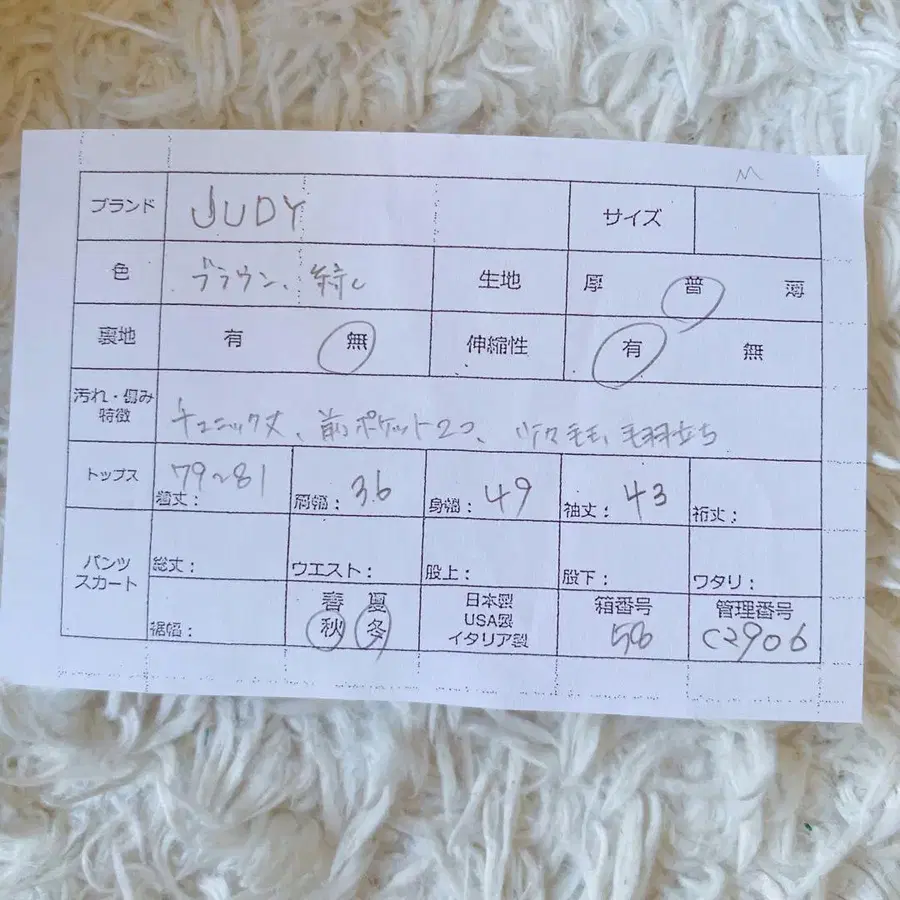 M
ブランド JUDY サイズ
色 ブラウン、 生地 厚 普 薄
裏地 有 無 伸縮性 有 無
汚れ・傷み
特徴
チュニック丈、前ポケット2つ、少々毛玉、毛羽立ち
トップス 着丈: 79~81 肩幅: 36 身幅: 49 袖丈: 43 裄丈:
パンツ
スカート
総丈: ウエスト: 股上: 股下: ワタリ:
裾幅:
春 夏
秋 冬
日本製
USA製
イタリア製
箱番号
58
管理番号
C2906